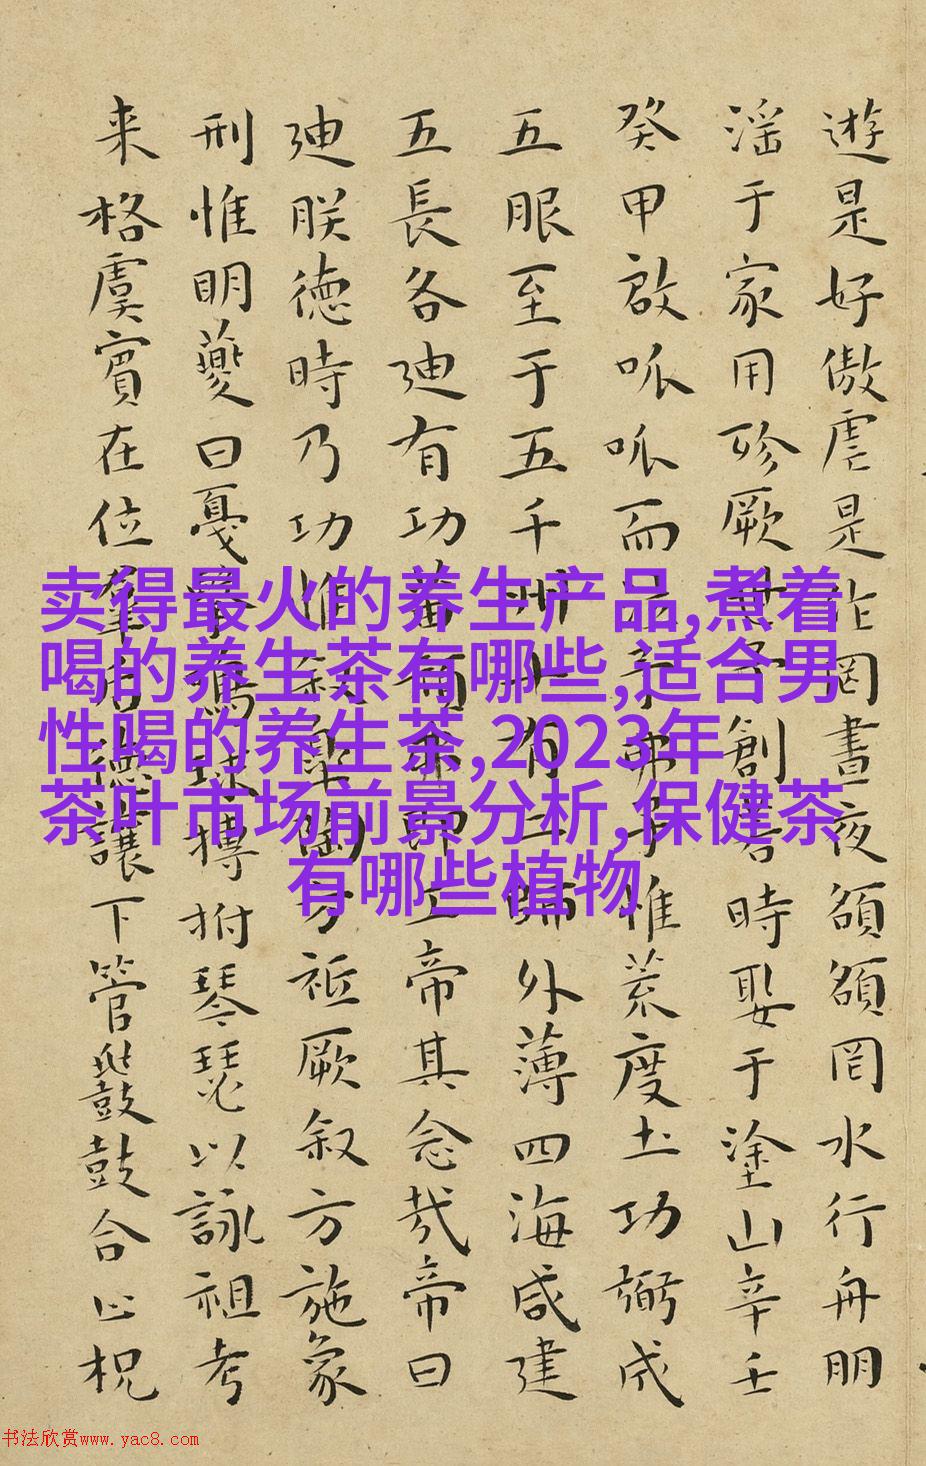 遊是好傲虐是作罔晝夜頟頟罔水行舟朋
滛于家用殄厥世予創若時娶于塗山辛壬
癸甲啟呱呱而泣予弗子惟荒度土功弼成
五服至于五千州十有二師外薄四海咸建
五長各迪有功苗頑弗即工帝其念哉帝曰
迪朕德時乃功惟叙皋陶方祗厥叙方施象
刑惟明夔曰戛擊鳴球搏拊琴瑟以詠祖考
来格虞賓在位羣后德讓下管鼗鼓合止柷
卖得最火的养生产品,煮着
喝的养生茶有哪些,适合男
性喝的养生茶,2023年
茶叶市场前景分析,保健茶
有哪些植物
书法欣赏www.yac8.com